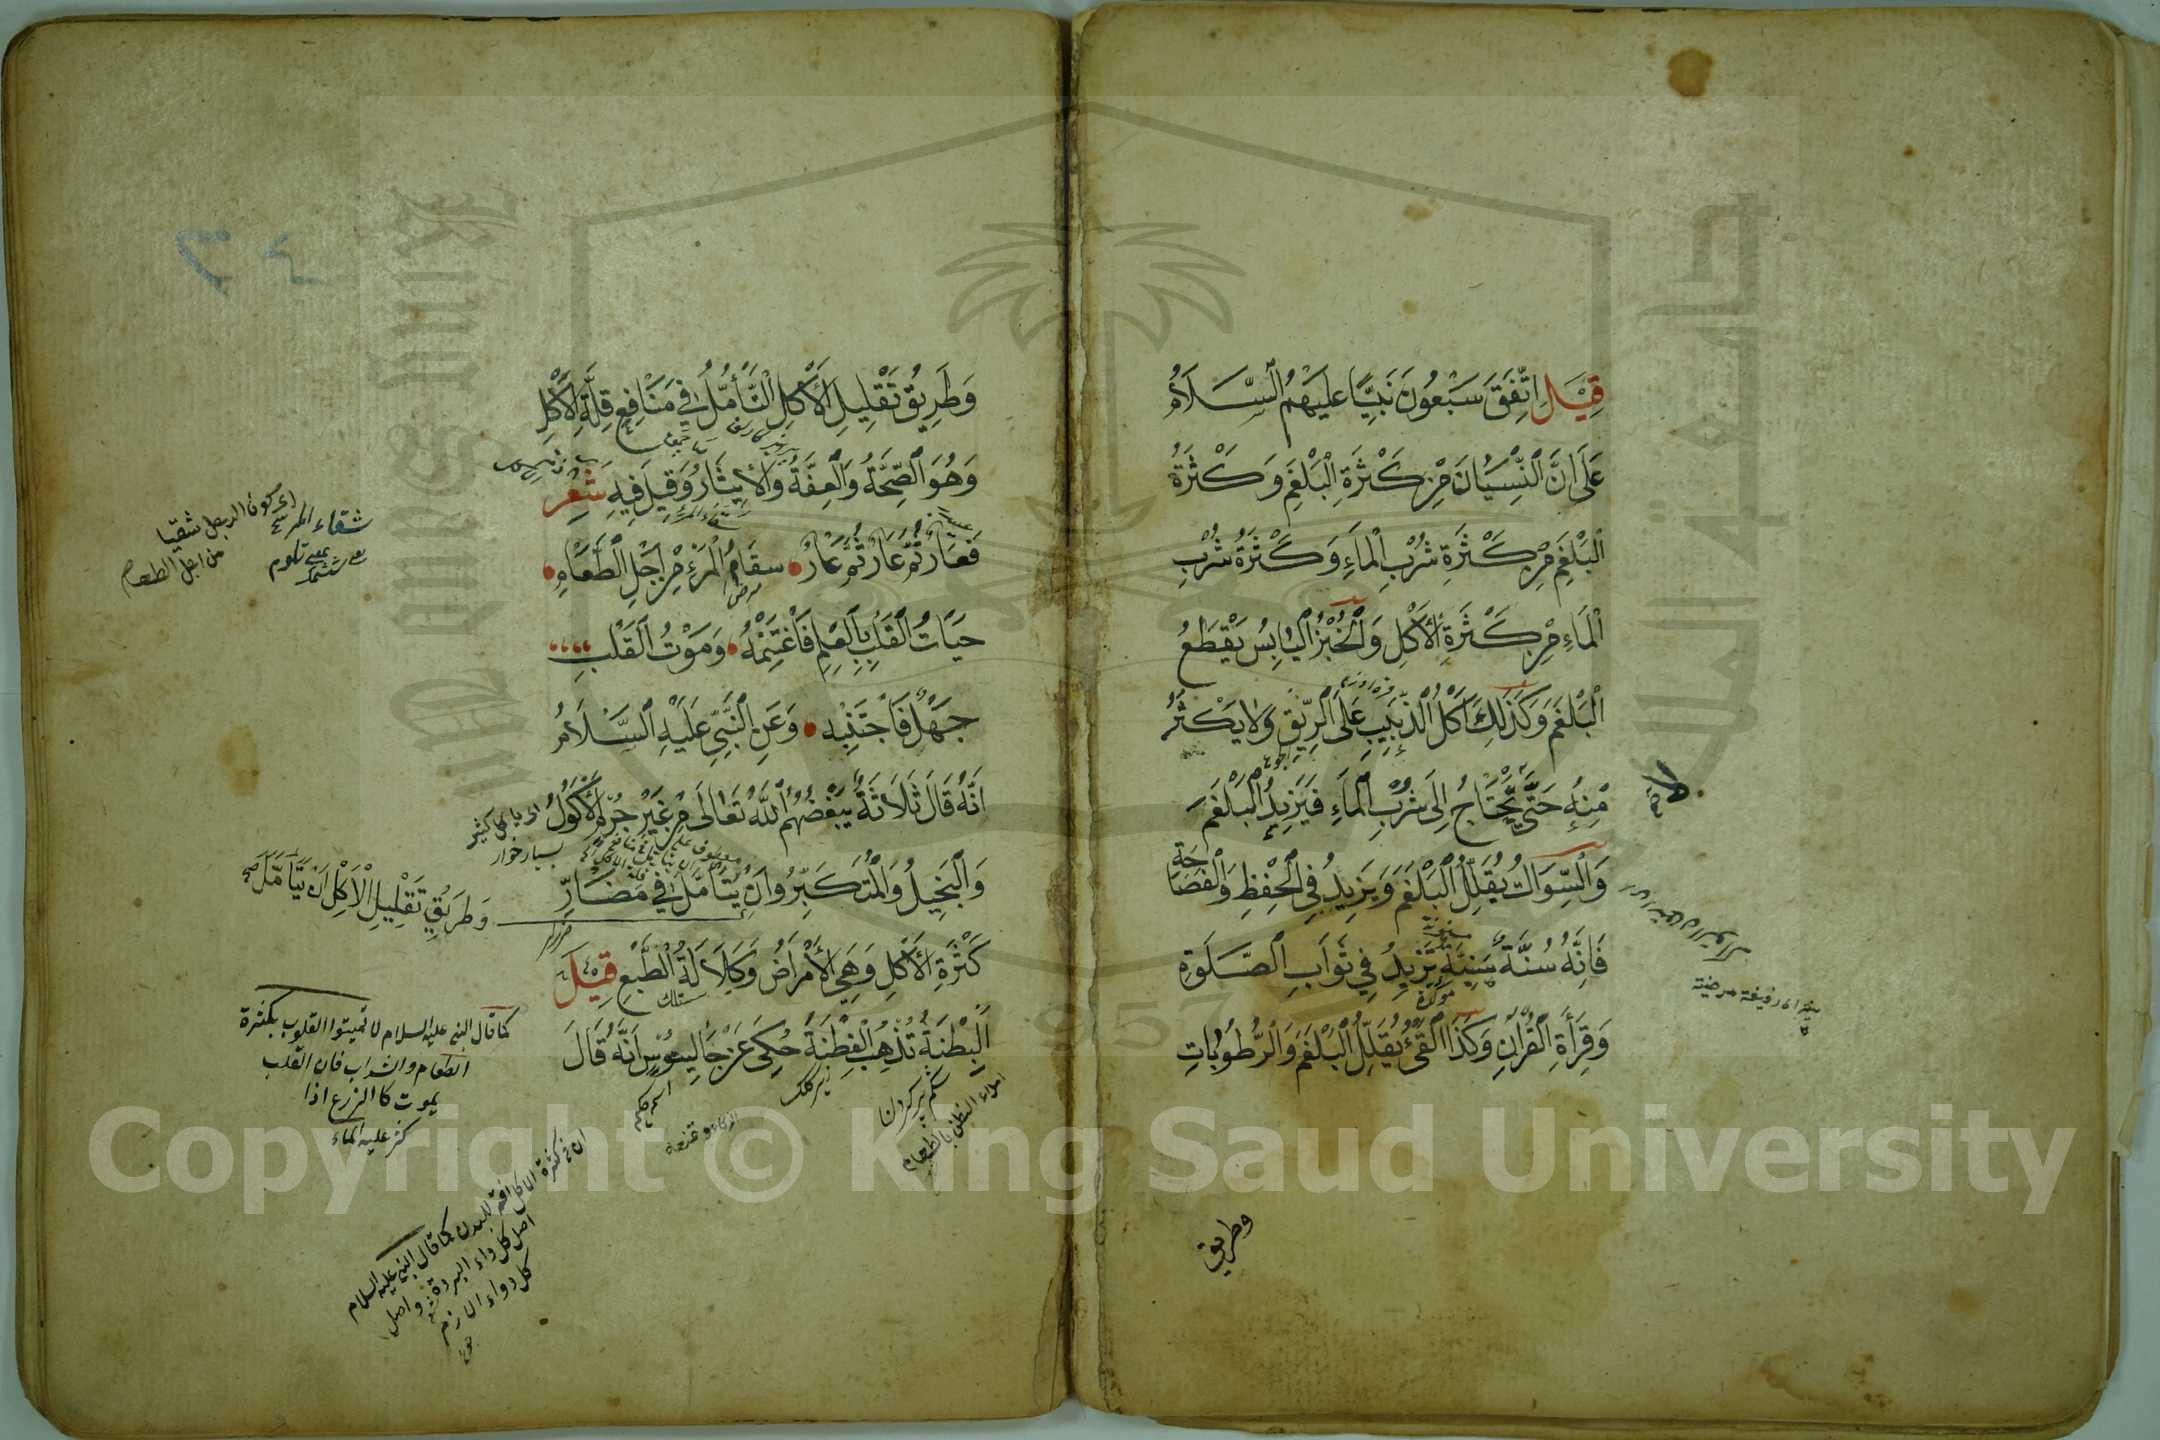 قِيْلَ اِتَّفَقَ سَبْعُونَ نَبِيًّا عَلَيْهِمُ السَّلَامُ
عَلَى اَنَّ النِّسْيَانَ مِنْ كَثْرَةِ الْبَلْغَمِ وَكَثْرَةُ
الْبَلْغَمِ مِنْ كَثْرَةِ شُرْبِ الْمَاءِ وَكَثْرَةُ شُرْبِ
الْمَاءِ مِنْ كَثْرَةِ الْاَكْلِ وَالْخُبْزُ الْيَابِسُ يَقْطَعُ
الْبَلْغَمَ وَكَذٰلِكَ اَكْلُ الزَّبِيبِ عَلَى الرِّيقِ وَلَا يَكْثُرُ
مِنْهُ حَتَّى يَحْتَاجُ اِلَى شُرْبِ الْمَاءِ فَيَزِيدُ الْبَلْغَمَ
وَالسِّوَاكُ يُقَلِّلُ الْبَلْغَمَ وَيَزِيدُ فِي الْحِفْظِ وَالْفَصَاحَةِ
فَاِنَّهُ سُنَّةٌ سَنِيَّةٌ تَزِيدُ فِي ثَوَابِ الصَّلَوةِ
وَقِرَأَةِ الْقُرْاٰنِ وَكَذَا الْقَيْءُ يُقَلِّلُ الْبَلْغَمَ وَالرُّطُوبَاتِ
وطريق
وَطَرِيقُ تَقْلِيلِ الْاَكْلِ التَّأَمُّلُ فِي مَنَافِعِ قِلَّةِ الْاَكْلِ
وَهُوَ الصِّحَّةُ وَالْعِفَّةُ وَالْاِيثَارُ وَقِيلَ فِيهِ شَعِرْ
فَعَارٌ ثُمَّ عَارٌ ثُمَّ عَارٌ سَقَامُ الْمَرْءِ مِنْ اَجْلِ الطَّعَامِ
حَيَاتُ الْقَلْبِ بِالْعِلْمِ فَاغْتَنِمْهُ وَمَوْتُ الْقَلْبِ
جَهْلٌ فَاجْتَنِبْهِ وَعَنِ النَّبِيِّ عَلَيْهِ السَّلَامُ
اَنَّهُ قَالَ ثَلَاثَةٌ يُبْغِضُهُمُ اللّٰهُ تَعَالَى مِنْ غَيْرِ جُرْمٍ الْاَكُولُ
وَالْبَخِيلُ وَالْمُتَكَبِّرُ وَاَنْ يَتَأَمَّلَ فِي مَضَارِّ
كَثْرَةِ الْاَكْلِ وَهِيَ الْاَمْرَاضُ وَكَلَالَةُ الطَّبْعِ قِيْلَ
اَلْبِطْنَةُ تُذْهِبُ الْفِطْنَةَ حُكِيَ عَنْ جَالِينُوسَ اَنَّهُ قَالَ
شقاء المرء
اى كون الرجل شقيا
من اجل الطعام
وَطَرِيقِ تَقْلِيلِ الْاَكْلِ اَنْ يَتَأَمَّلَ صح
كما قال النبي عليه السلام لا تميتوا القلوب بكثرة
الطعام والشراب فان القلب
يموت كالزرع اذا
كثر عليه الماء
ان في كثرة الاكل افة للبدن كما قال النبي عليه السلام
اصل كل داء البردة واصل
كل دواء الازم
شكم پر كردن
املاء البطن بالطعام
اسم حكيم
Copyright © King Saud University
1957